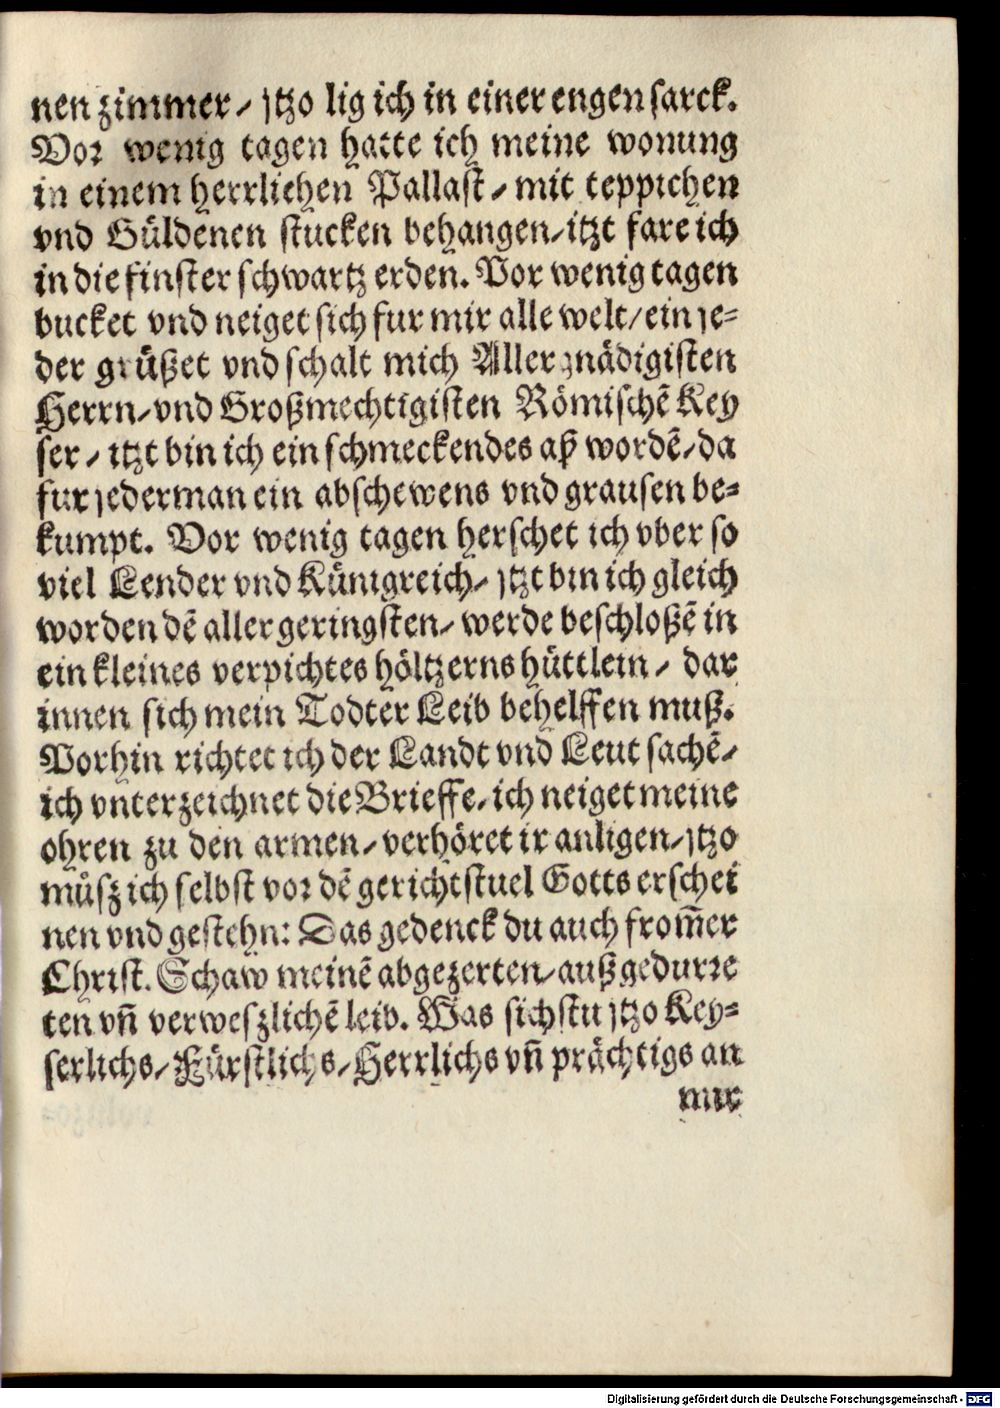 nen zimmer / jtzo lig ich in einer engen sarck.
Vor wenig tagen hatte ich meine wonung
in einem herrliehen Pallast / mit teppichen
vnd Güldenen stucken behangen / itzt fare ich
in die finster schwartz erden. Vor wenig tagen
bucket vnd neiget sich fur mir alle welt / ein je=
der grüßet vnd schalt mich Aller gnädigisten
Herrn / vnd Großmechtigisten Römischẽ Key
ser / itzt bin ich ein schmeckendes aß wordẽ / da
fur jederman ein abschewens vnd grausen be=
kumpt. Vor wenig tagen herschet ich vber so
viel Lender vnd Künigreich / jtzt bin ich gleich
worden dẽ aller geringsten / werde beschloßẽ in
ein kleines verpichtes höltzerns hüttlein / dar
innen sich mein Todter Leib behelffen muß.
Vorhin richtet ich der Landt vnd Leut sachẽ /
ich vnterzeichnet die Brieffe / ich neiget meine
ohren zu den armen / verhöret ir anligen / jtzo
müsz ich selbst vor dẽ gerichtstuel Gotts erschei
nen vnd gestehn: Das gedenck du auch from̃er
Christ. Schaw meinẽ abgezerten / auß gedurre
ten vn̄ verweszlichẽ leib. Was sichstu jtzo Key=
serlichs / Fürstlichs / Herrlichs vn̄ prächtigs an
mir
Digitalisierung gefördert durch die Deutsche Forschungsgemeinschaft - DFG